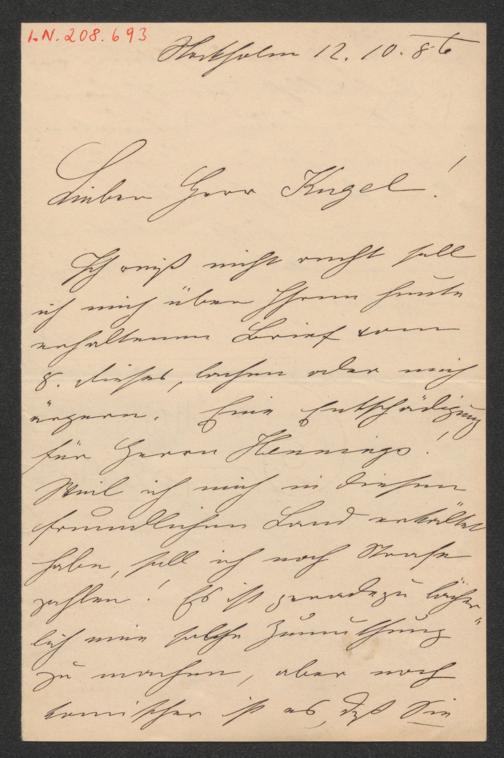 I.N. 208.693
Stockholm 12. 10. 86
Lieber Herr Kugel!
Ich weiß nicht recht soll
ich mich über Ihren heute
erhaltenen Brief vom
8. dieses, lachen oder mich
ärgern. Eine Entschädigung
für Herrn Hennings!
Weil ich mich in diesem
freundlichen Land erkältet
habe, soll ich noch Strafe
zahlen! Es ist geradezu lächer-
lich mir solche Zumuthung
zu machen, aber noch
komischer ist es, daß Sie